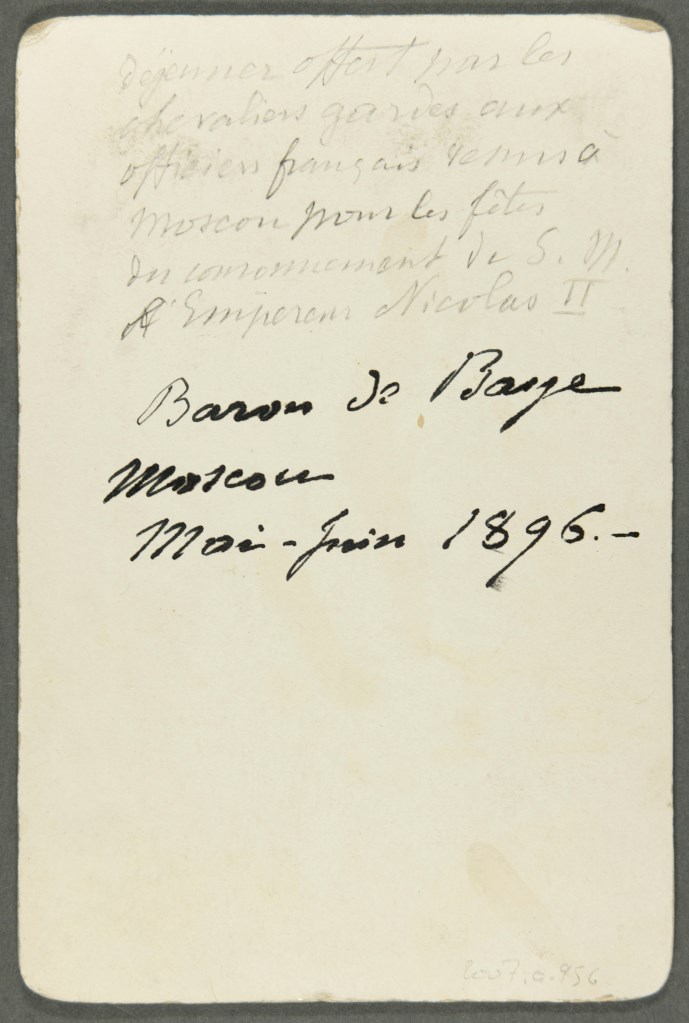 Déjeuner offert par les
chevaliers gardes aux
officiers français venus à
Moscou pour les fêtes
du couronnement de S. M.
l'Empereur Nicolas II
Baron de Baye
Moscou
Mai-Juin 1896.-
2007.a.956